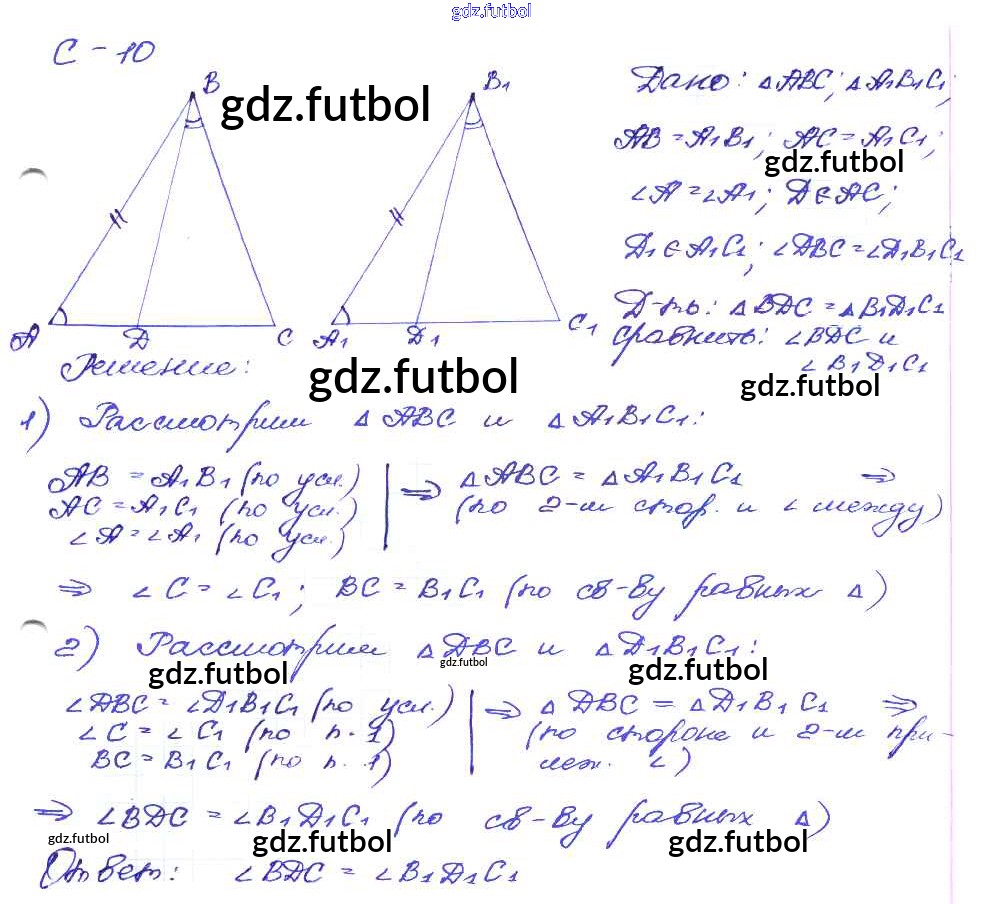 gdz.futbol
С - 10
B
gdz.futbol
B1
A
Д
C
A1
Д1
C1
Дано: △ABC; △A1B1C1;
AB = A1B1; AC = A1C1;
gdz.futbol
∠A = ∠A1; Д ∈ AC;
Д1 ∈ A1C1; ∠ДBC = ∠Д1B1C1
Д-ть: △BДC = △B1Д1C1
Сравнить: ∠BДC и
∠B1Д1C1
gdz.futbol
Решение:
gdz.futbol
1) Рассмотрим △ABC и △A1B1C1:
AB = A1B1 (по усл.) | ⇒ △ABC = △A1B1C1 ⇒
AC = A1C1 (по усл.) (по 2-м стор. и ∠ между)
∠A = ∠A1 (по усл.)
⇒ ∠C = ∠C1; BC = B1C1 (по св-ву равных △)
2) Рассмотрим △ДBC и △Д1B1C1:
gdz.futbol gdz.futbol gdz.futbol
∠ДBC = ∠Д1B1C1 (по усл.) | ⇒ △ДBC = △Д1B1C1 ⇒
∠C = ∠C1 (по п. 1) (по стороне и 2-м при-
BC = B1C1 (по п. 1) леж. ∠)
⇒ ∠BДC = ∠B1Д1C1 (по св-ву равных △)
gdz.futbol gdz.futbol gdz.futbol
Ответ: ∠BДC = ∠B1Д1C1